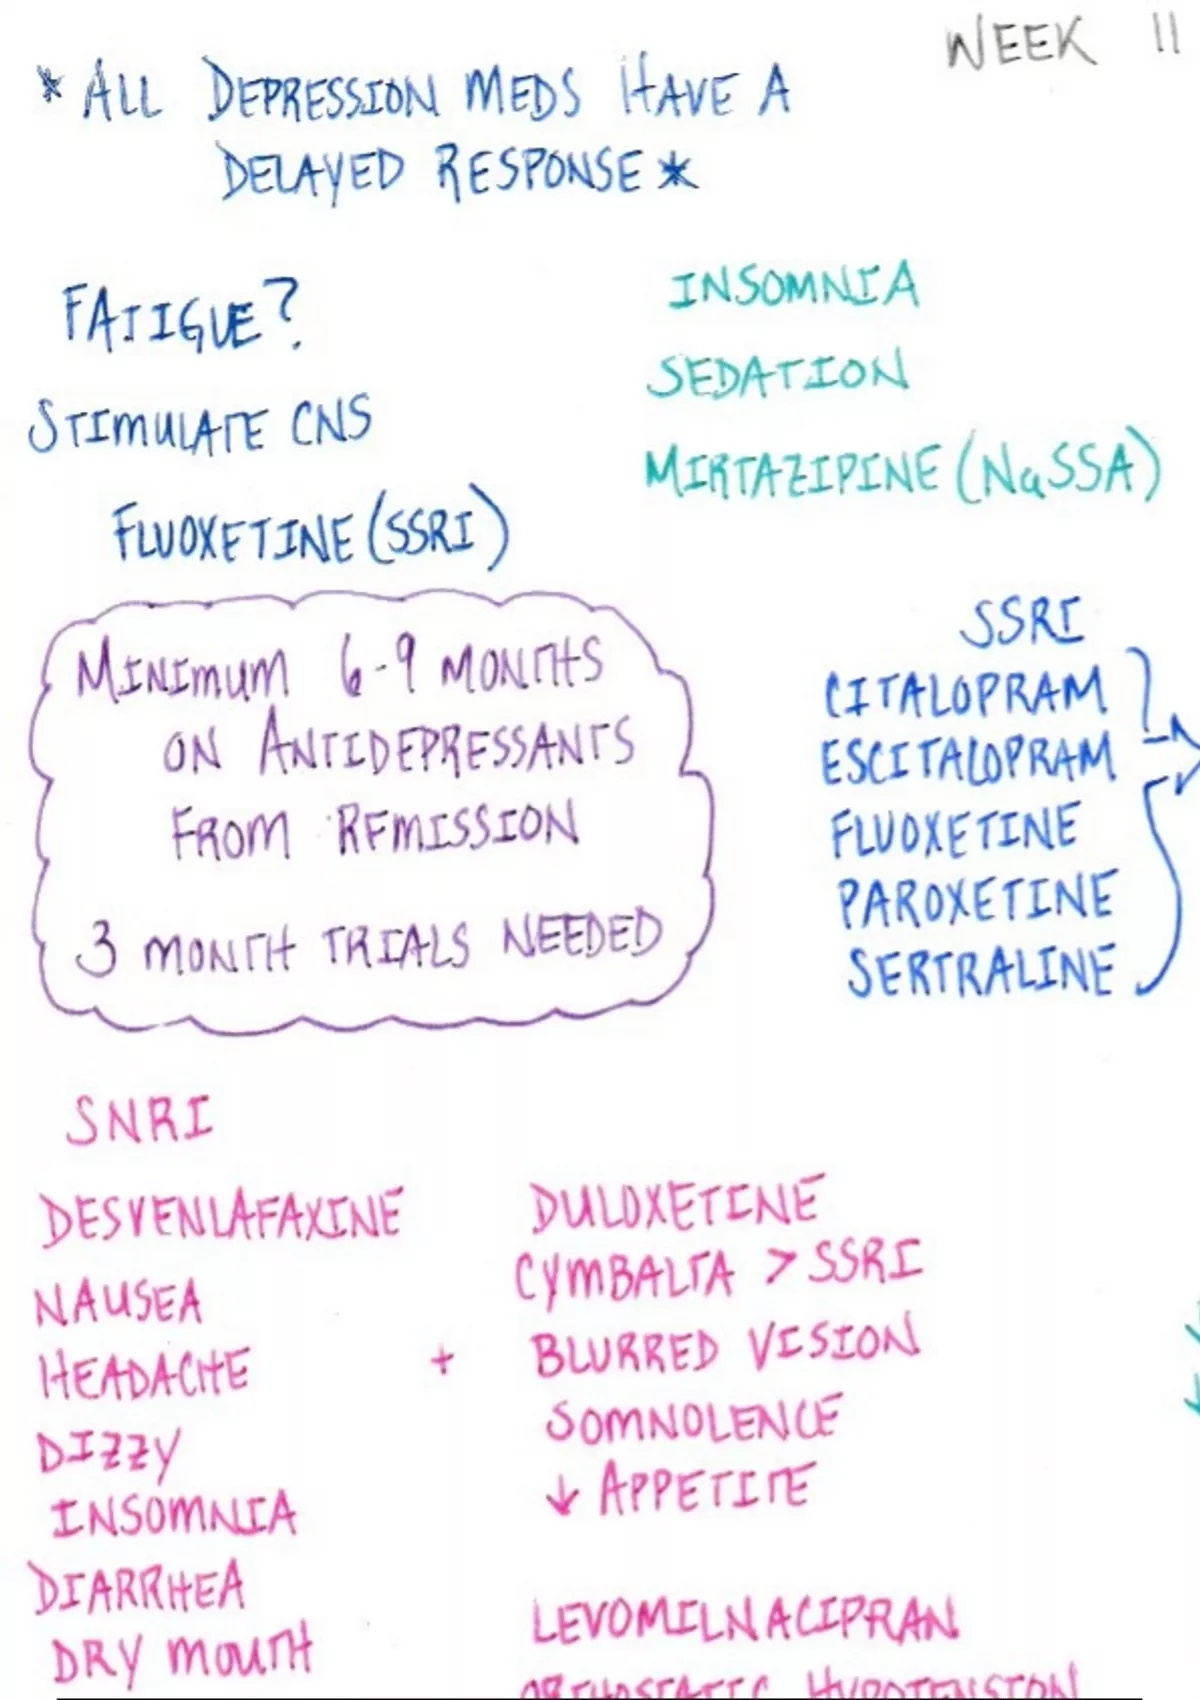 WEEK 11
* ALL DEPRESSION MEDS HAVE A
DELAYED RESPONSE *
FATIGUE?
STIMULATE CNS
FLUOXETINE (SSRI)
INSOMNIA
SEDATION
MIRTAZIPINE (NaSSA)
MINIMUM 6-9 MONTHS
ON ANTIDEPRESSANTS
FROM REMISSION
3 MONTH TRIALS NEEDED
SSRI
CITALOPRAM
ESCITALOPRAM
FLUOXETINE
PAROXETINE
SERTRALINE
SNRI
DESVENLAFAXINE
NAUSEA
HEADACHE
DIZZY
INSOMNIA
DIARRHEA
DRY MOUTH
+
DULOXETINE
CYMBALTA > SSRI
BLURRED VISION
SOMNOLENCE
↓ APPETITE
LEVOMILNACIPRAN
ORTHOSTATIC HYPOTENSION